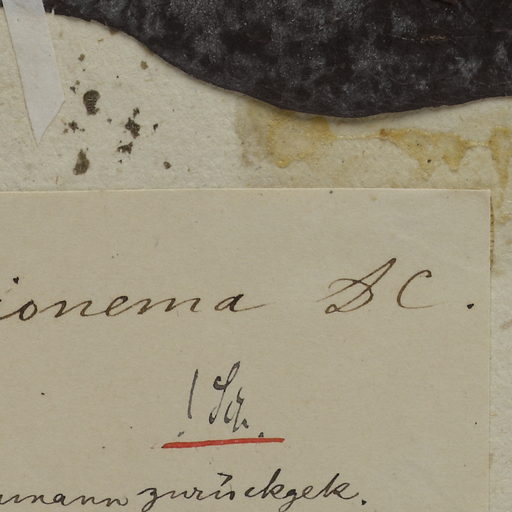 ionema DC.
! Sq.
umann zurückgek.